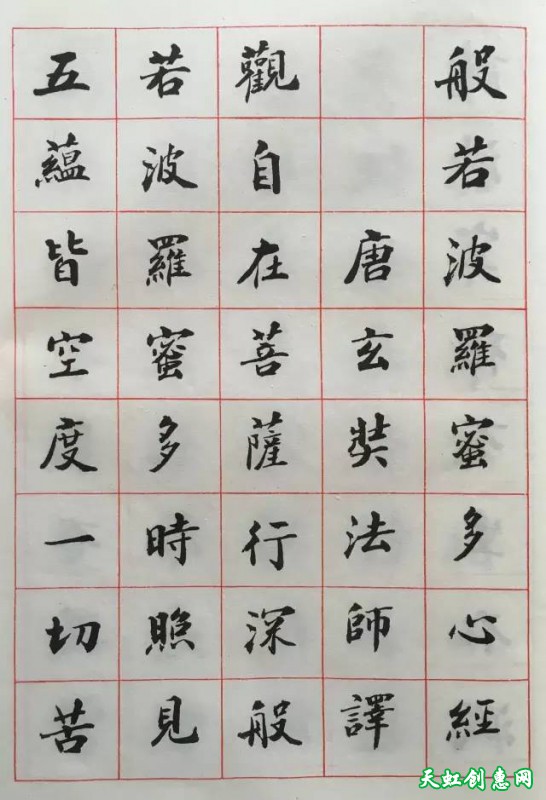 般若波羅蜜多心經
唐玄奘法師譯
觀自在菩薩行深般
若波羅蜜多時照見
五蘊皆空度一切苦
天虹创惠网